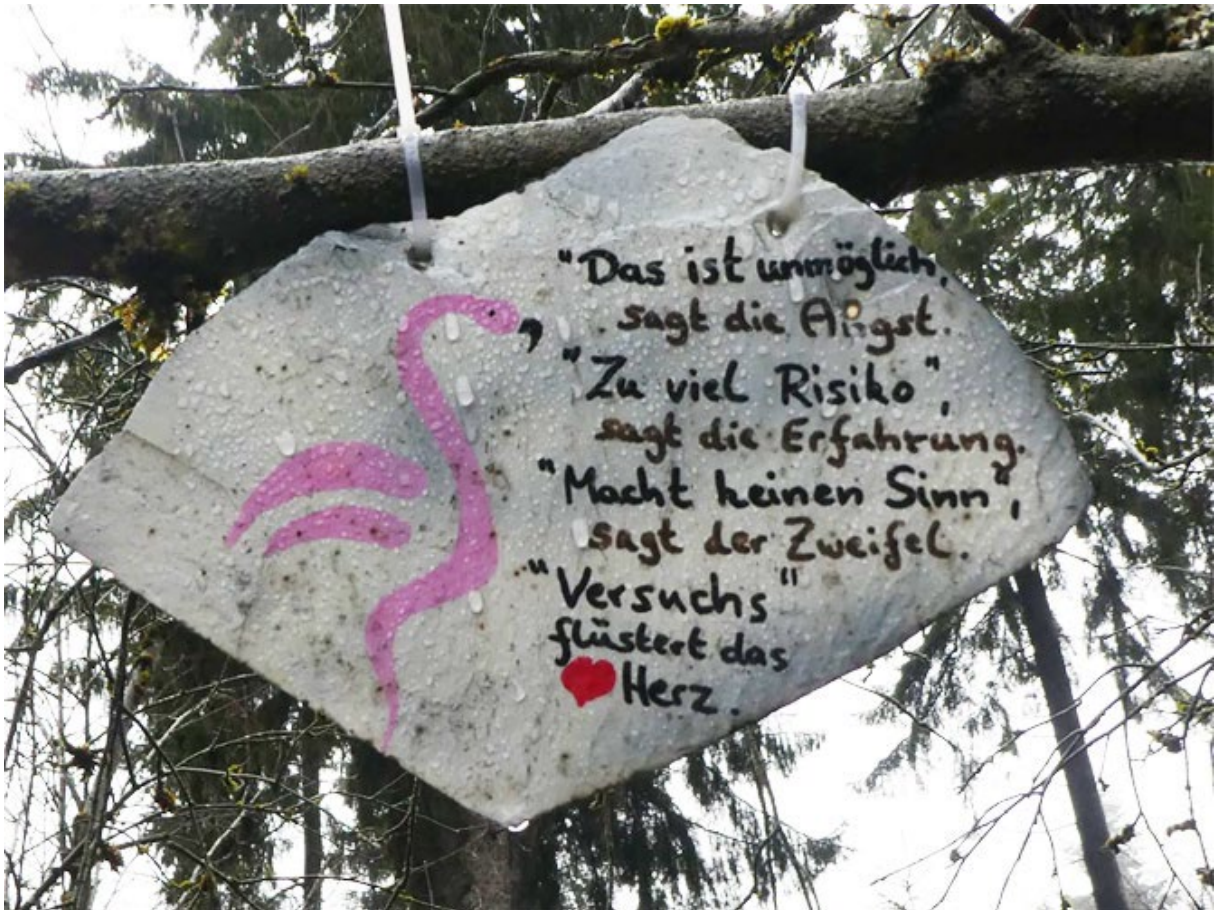 "Das ist unmöglich,
sagt die Angst.
"Zu viel Risiko",
sagt die Erfahrung.
"Macht keinen Sinn",
sagt der Zweifel.
"Versuchs"
flüstert das
Herz.